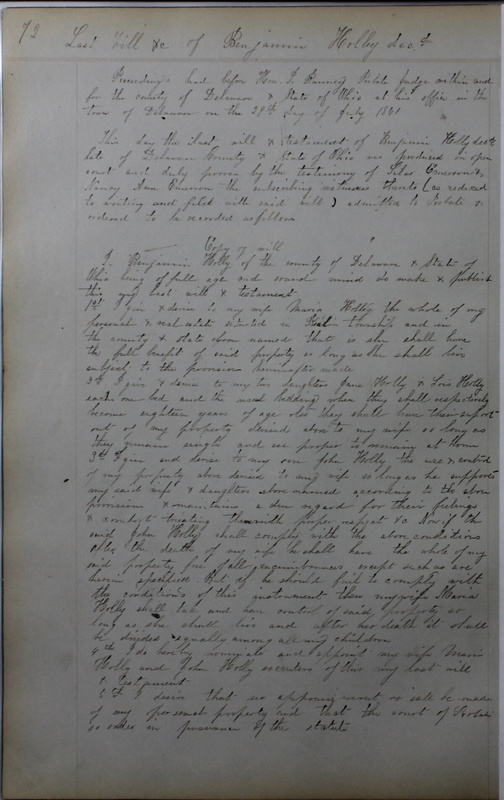 72
Last Will &c of Benjamin Holly dec.d
Proceedings had before Hon. T. Ranney Probate Judge within and
for the county of Delaware & State of Ohio at his office in the
town of Delaware on the 29th day of July 1861
This day the last will & testament of Benjamin Holly dec'd
late of Delaware County & State of Ohio was produced in open
court and duly proven by the testimony of Silas Emerson &
Nancy Ann Emerson the subscribing witnesses thereto (as reduced
to writing and filed with said will) admitted to Probate &
ordered to be recorded as follows
Copy of will
I, Benjamin Holly of the county of Delaware & State of
Ohio being of full age and sound mind do make & publish
this my last will & testament
1st I give & devise to my wife Maria Holly the whole of my
personal & real estate situated in township and in
the county & state above named that is she shall have
the full benefit of said property so long as she shall live
subject to the provisions hereinafter made
3d I give & devise to my two daughters Jane Holly & Lois Holly
each one bed and the usual bedding when they shall respectively
become eighteen years of age also they shall have their support
out of my property devised above to my wife so long as
they remain single and see proper to remain at home
3d I give and devise to my son John Holly the use & control
of my property above devised to my wife so long as he supports
my said wife & daughters above named according to the above
provision & maintains a due regard for their feelings
& comfort treating them with proper respect &c Now if the
said John Holly shall comply with the above conditions
after the death of my wife he shall have the whole of my
said property free of all encumbrances except such as are
herein specified But if he should fail to comply with
the conditions of this instrument then my wife Maria
Holly shall take and have control of said property so
long as she shall live and after her death it shall
be divided equally among all my children
4th I do hereby nominate and appoint my wife Maria
Holly and John Holly executors of this my last will
& testament
5th I desire that no appraisement or sale be made
of my personal property and that the court of Probate
so order in pursuance of the statute